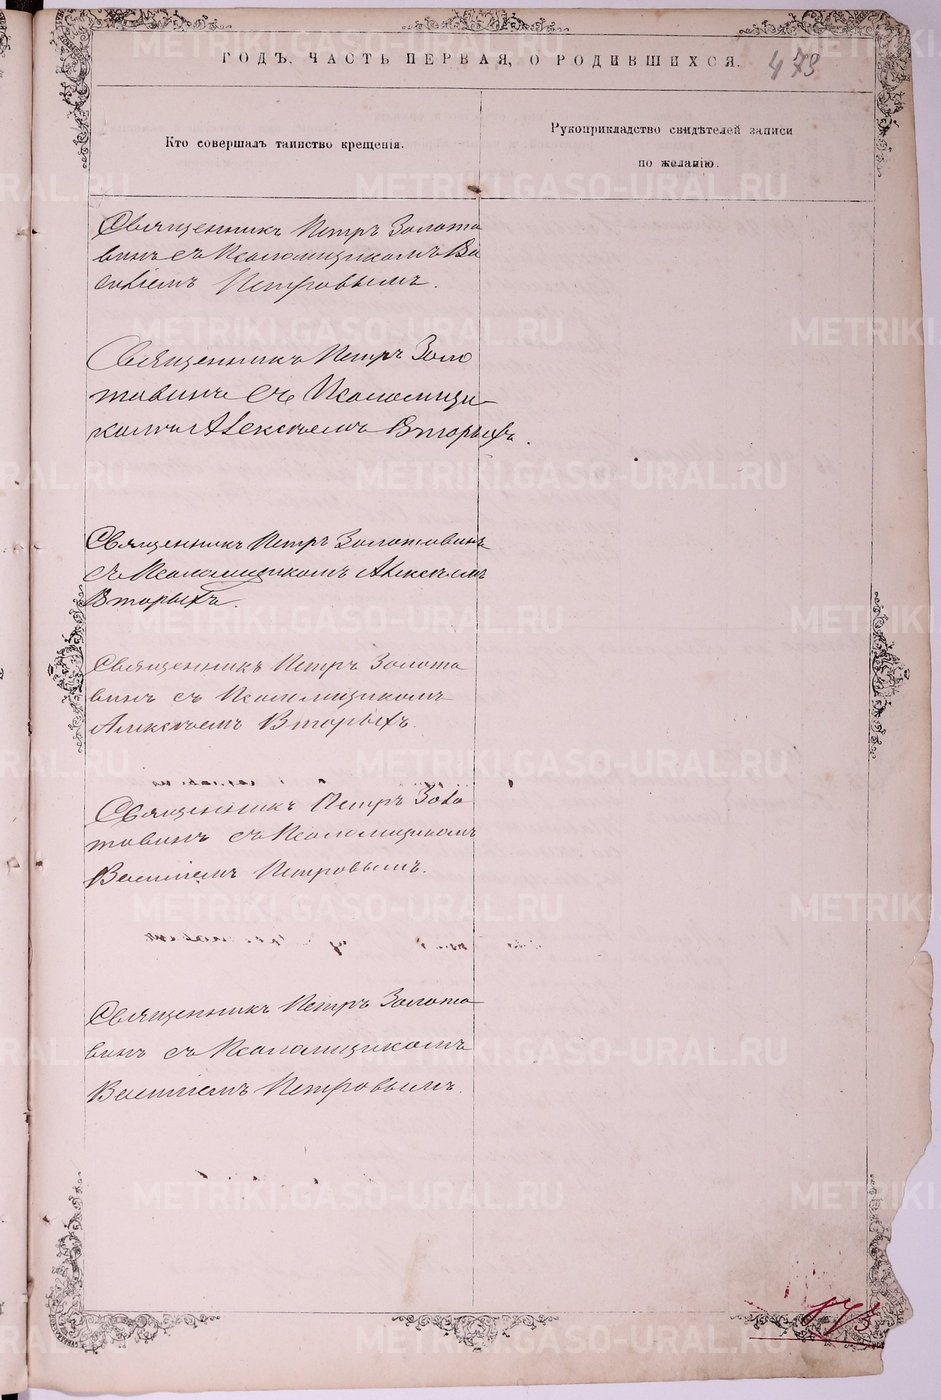 ГОДЪ, ЧАСТЬ ПЕРВАЯ, О РОДИВШИХСЯ. 473
Кто совершалъ таинство крещенія.
Рукоприкладство свидѣтелей записи
по желанію.
Священникъ Петръ Золота
винъ съ Псаломщикомъ Ва
силіемъ Петровымъ.
Священникъ Петръ Золо
тавинъ съ Псаломщи-
комъ Алексѣемъ Вторыхъ.
Священникъ Петръ Золотавинъ
съ Псаломщикомъ Алексѣемъ
Вторыхъ.
Священникъ Петръ Золота
винъ съ Псаломщикомъ
Алексѣемъ Вторыхъ.
Священникъ Петръ Золо
тавинъ съ Псаломщикомъ
Василіемъ Петровымъ.
Священникъ Петръ Золота
винъ съ Псаломщикомъ
Василіемъ Петровымъ.
METRIKI.GASO-URAL.RU